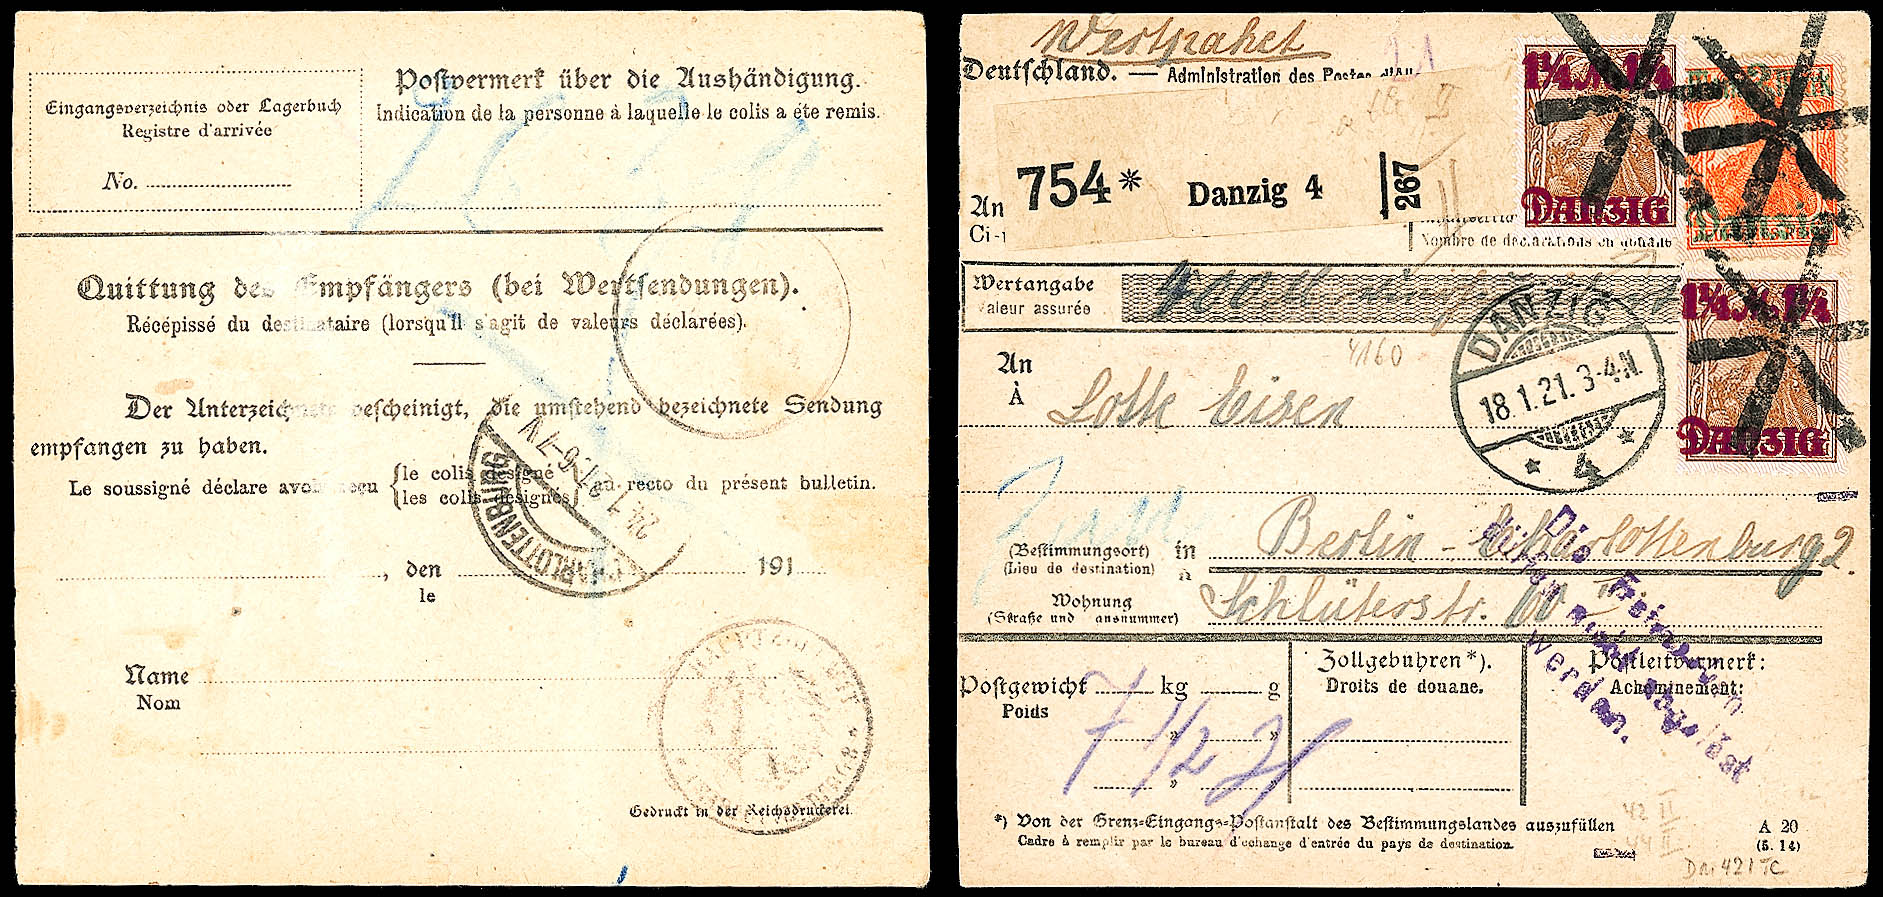 Eingangsverzeichnis oder Lagerbuch
Registre d'arrivée
No.
Postvermerk über die Aushändigung.
Indication de la personne à laquelle le colis a éte remis.
Quittung des Empfängers (bei Wertsendungen).
Récépissé du destinataire (lorsqu'il s'agit de valeurs déclarées).
Der Unterzeichnete bescheinigt, die umstehend bezeichnete Sendung
empfangen zu haben.
Le soussigné déclare avoir reçu {le colis désigné / les colis désignés} au recto du présent bulletin.
CHARLOTTENBURG
24.1.21.6-7V
, den 191
le
Name
Nom
Gedruckt in der Reichsdruckerei.
Wertpaket
Deutschland. — Administration des Postes d'All
754* Danzig 4 267
An
Ci-
Nombre de déclarations en douane
1¼ M 1¼
DANZIG
1¼ M 1¼
DANZIG
Wertangabe
Valeur assurée
4160
DANZIG
18.1.21.3-4N.
* 4 *
An
À
Lotte Eisen
(Bestimmungsort) in Berlin - Charlottenburg 2.
(Lieu de destination) à
Wohnung Schlüterstr. 60 III
(Straße und ausnummer)
Die Freimarken
dürfen nicht abgelöst
werden.
Postgewicht kg g
Poids
7 1/2
Zollgebühren*).
Droits de douane.
Postleitvermerk:
Acheminement:
*) Von der Grenz-Eingangs-Postanstalt des Bestimmungslandes auszufüllen
Cadre à remplir par le bureau d'echange d'entrée du pays de destination.
A 20
(5. 14)
42 II
44 II